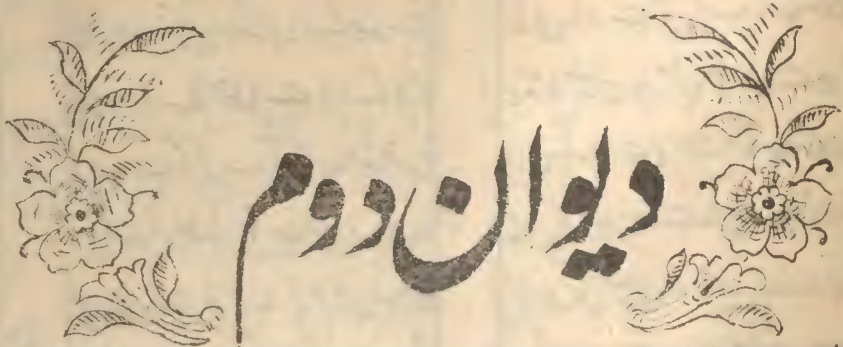 دیوان دوم